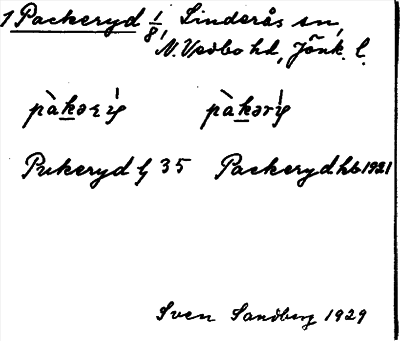 1 Packeryd 1/8, Linderås sn,
N. Vedbo hd, Jönk. l.
Pukeryd hf 35 Packeryd hb 1921
Sven Sandberg 1929